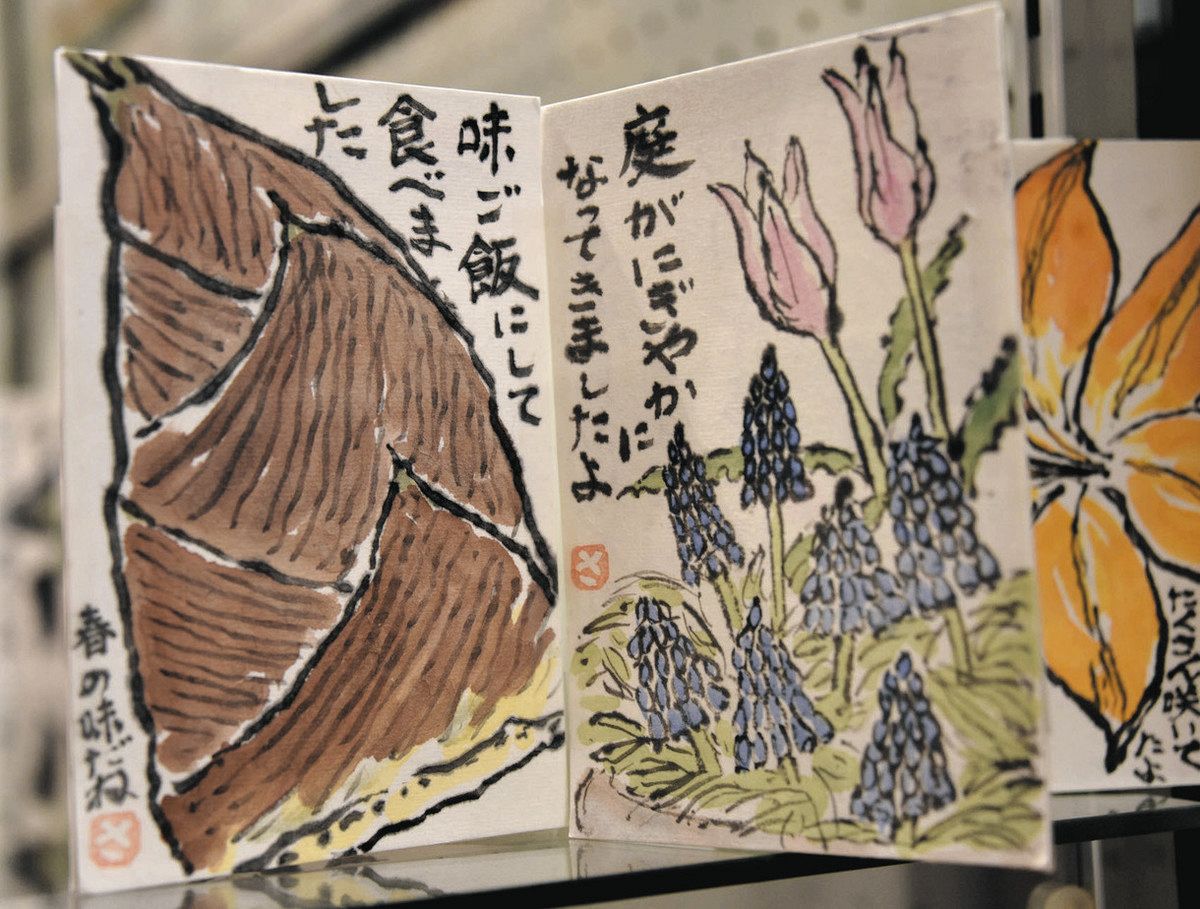 味ご飯にして
食べま
した
春の味だね
さ
庭がにぎやかに
なってきましたよ
さ
たくさん咲いて
たよ